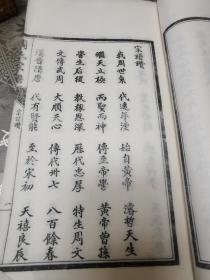 宗譜讚
我周世系 代遠年湮 始自黃帝 濬哲天生
繼天立極 而聖而神 傳至帝嚳 黃帝曾孫
嚳生后稷 教稼恩深 歷代忠厚 特生周文
文傳武周 大順天心 傳代卅七 八百餘春
漢晉隋唐 代有賢能 至於宋初 天禧庚辰
宗譜讚